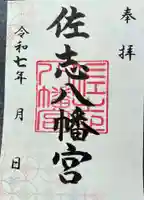 奉拝
佐志八幡宮
令和七年 月 日